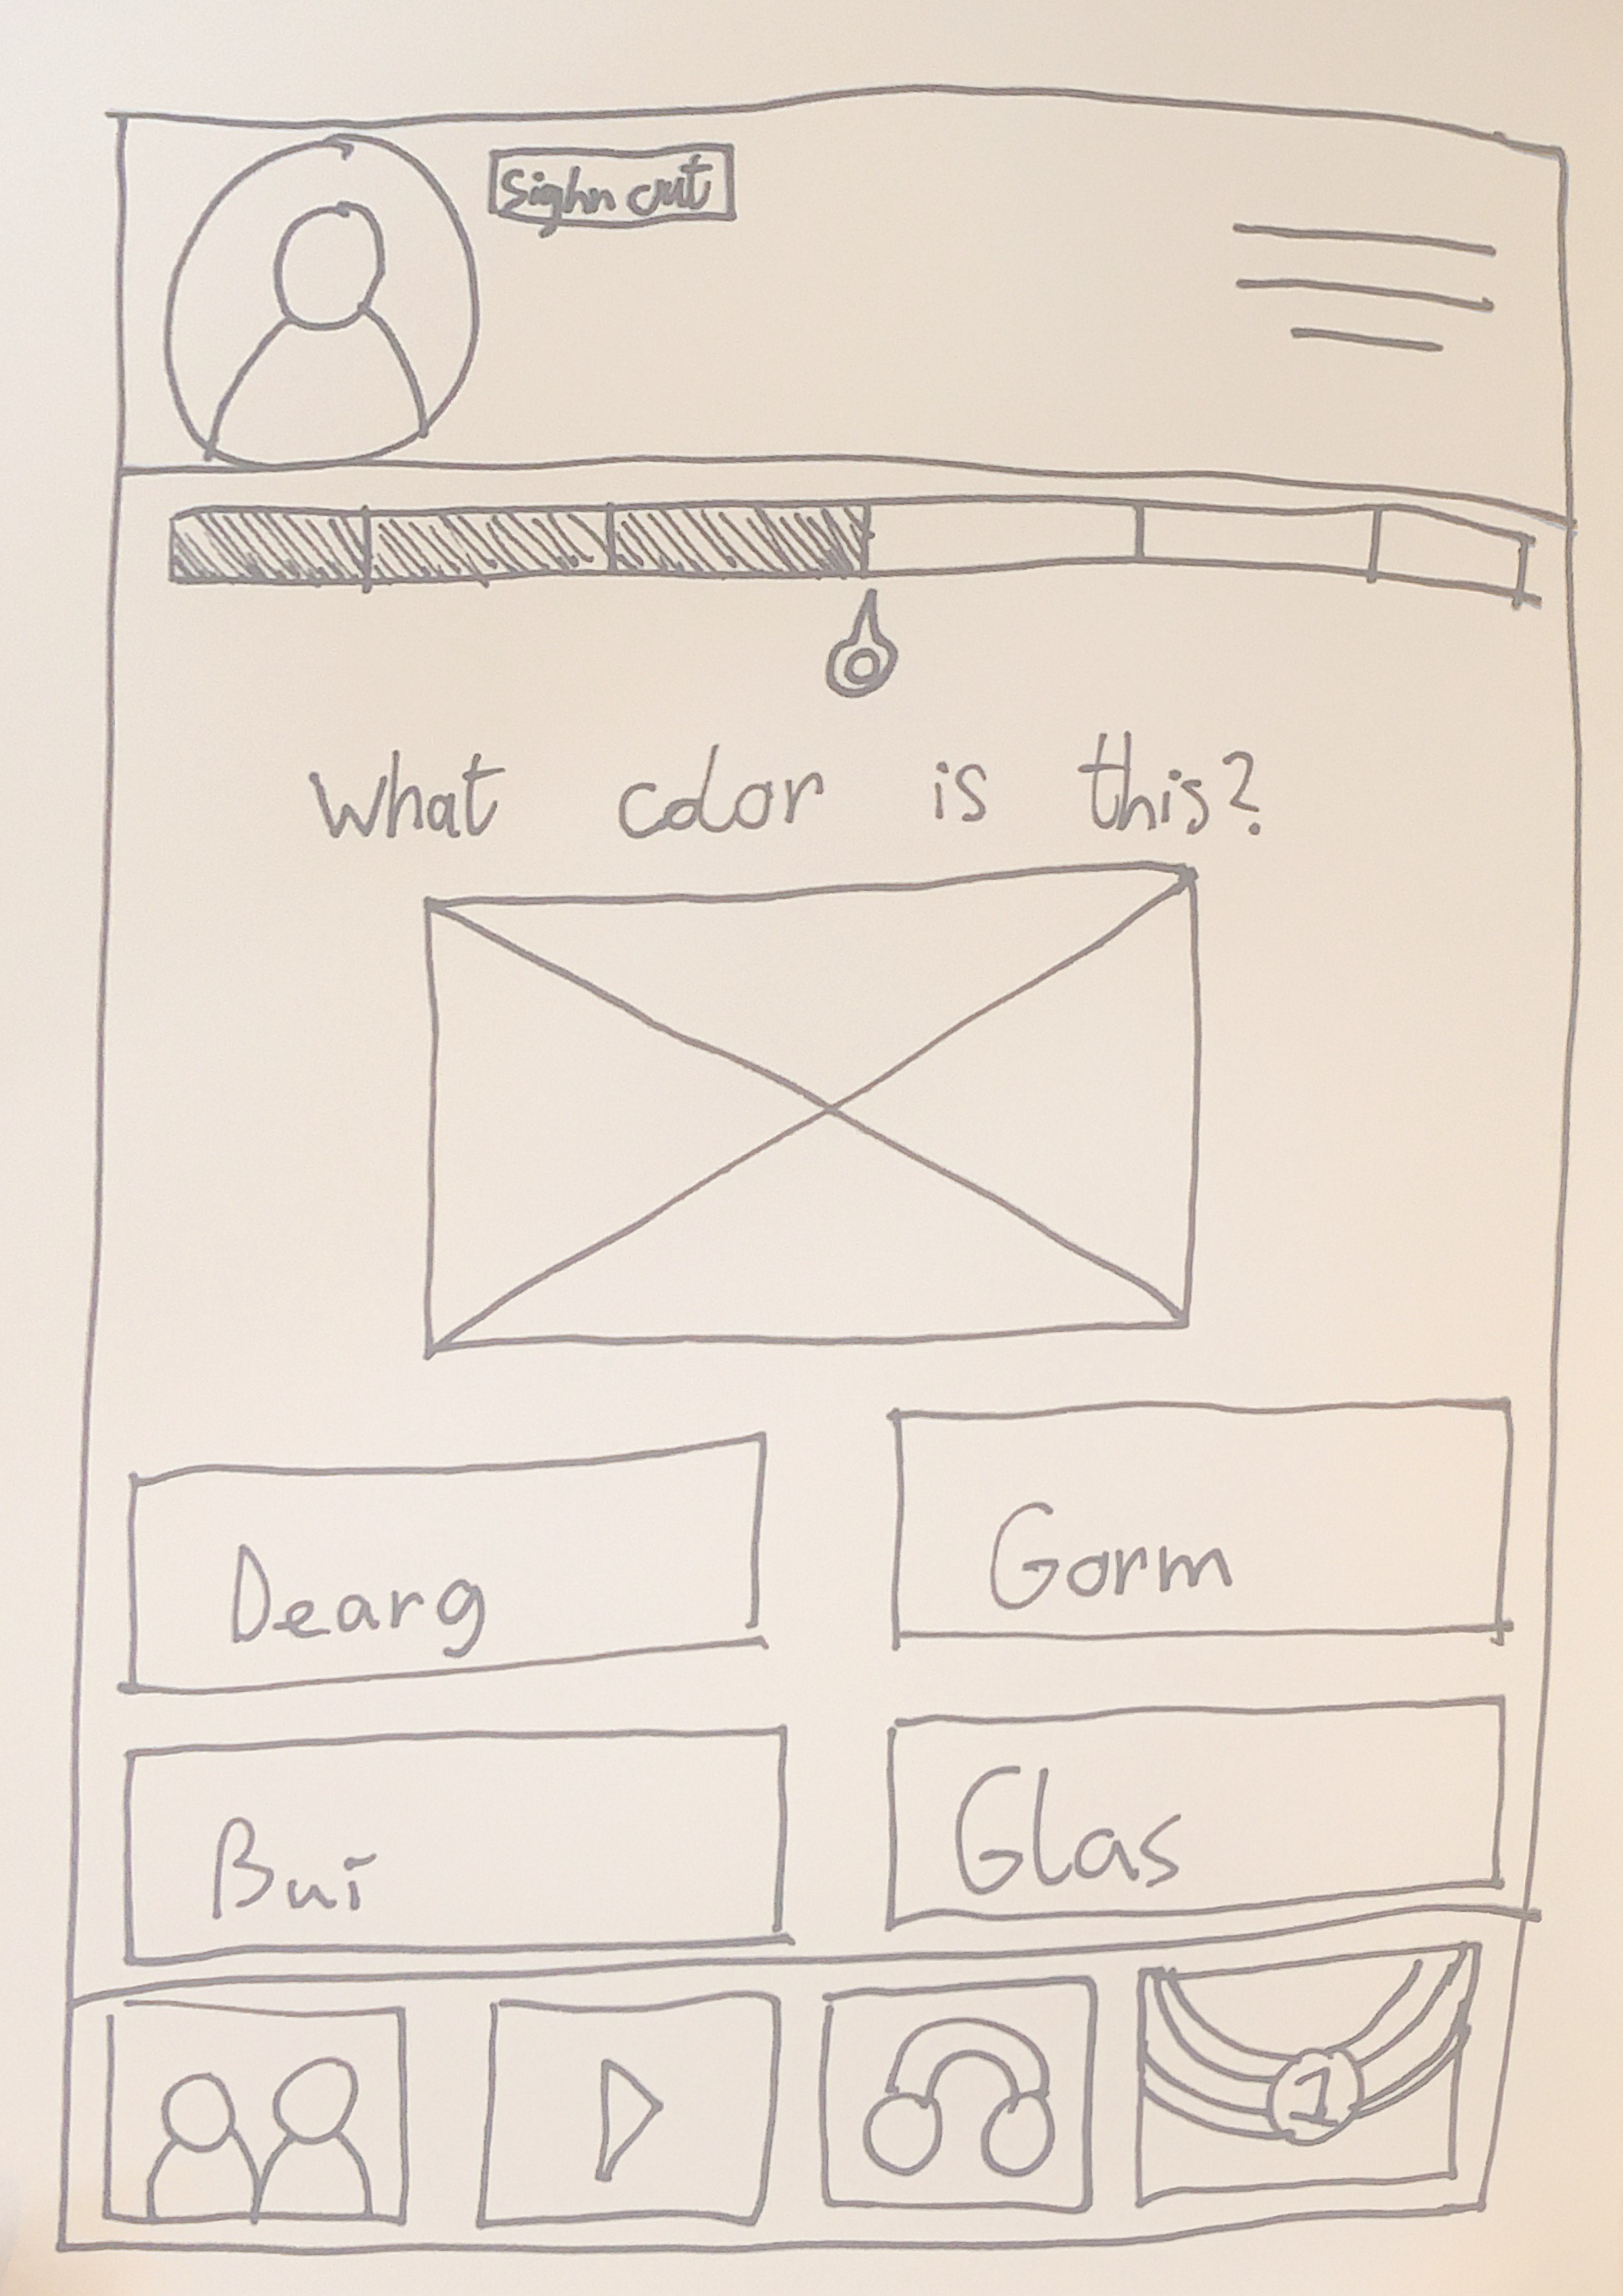 Sighn out
What color is this?
Dearg
Gorm
Bui
Glas
1